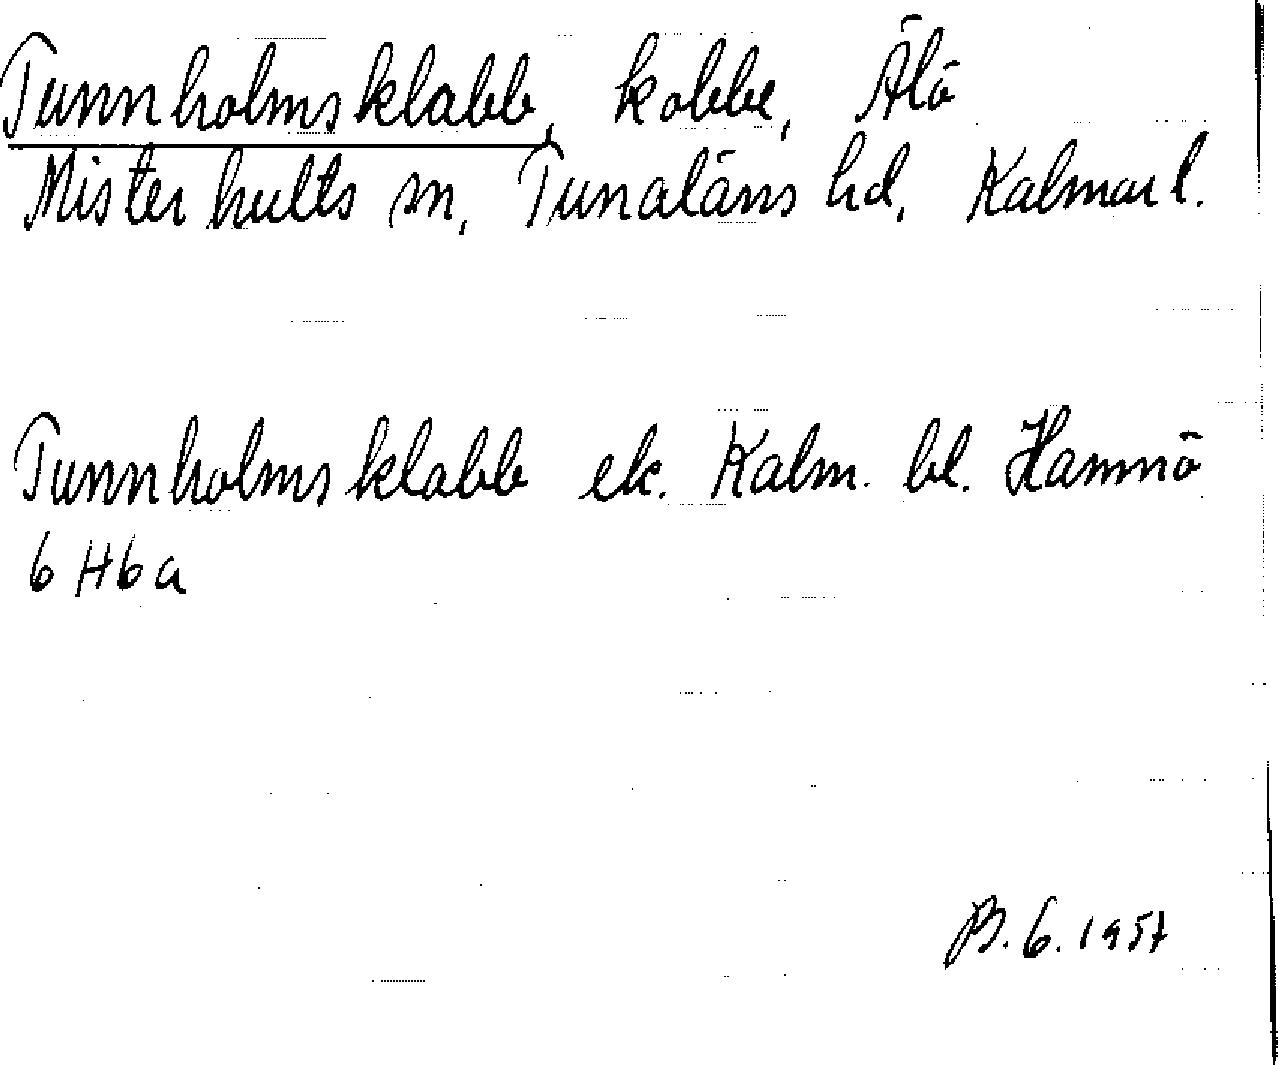 Tunnholmsklabb, kobbe, Älö
Misterhults sn, Tunaläns hd, Kalmar l.
Tunnholmsklabb ek. Kalm. bl. Hamnö
6 H 6 a
B. G. 1957